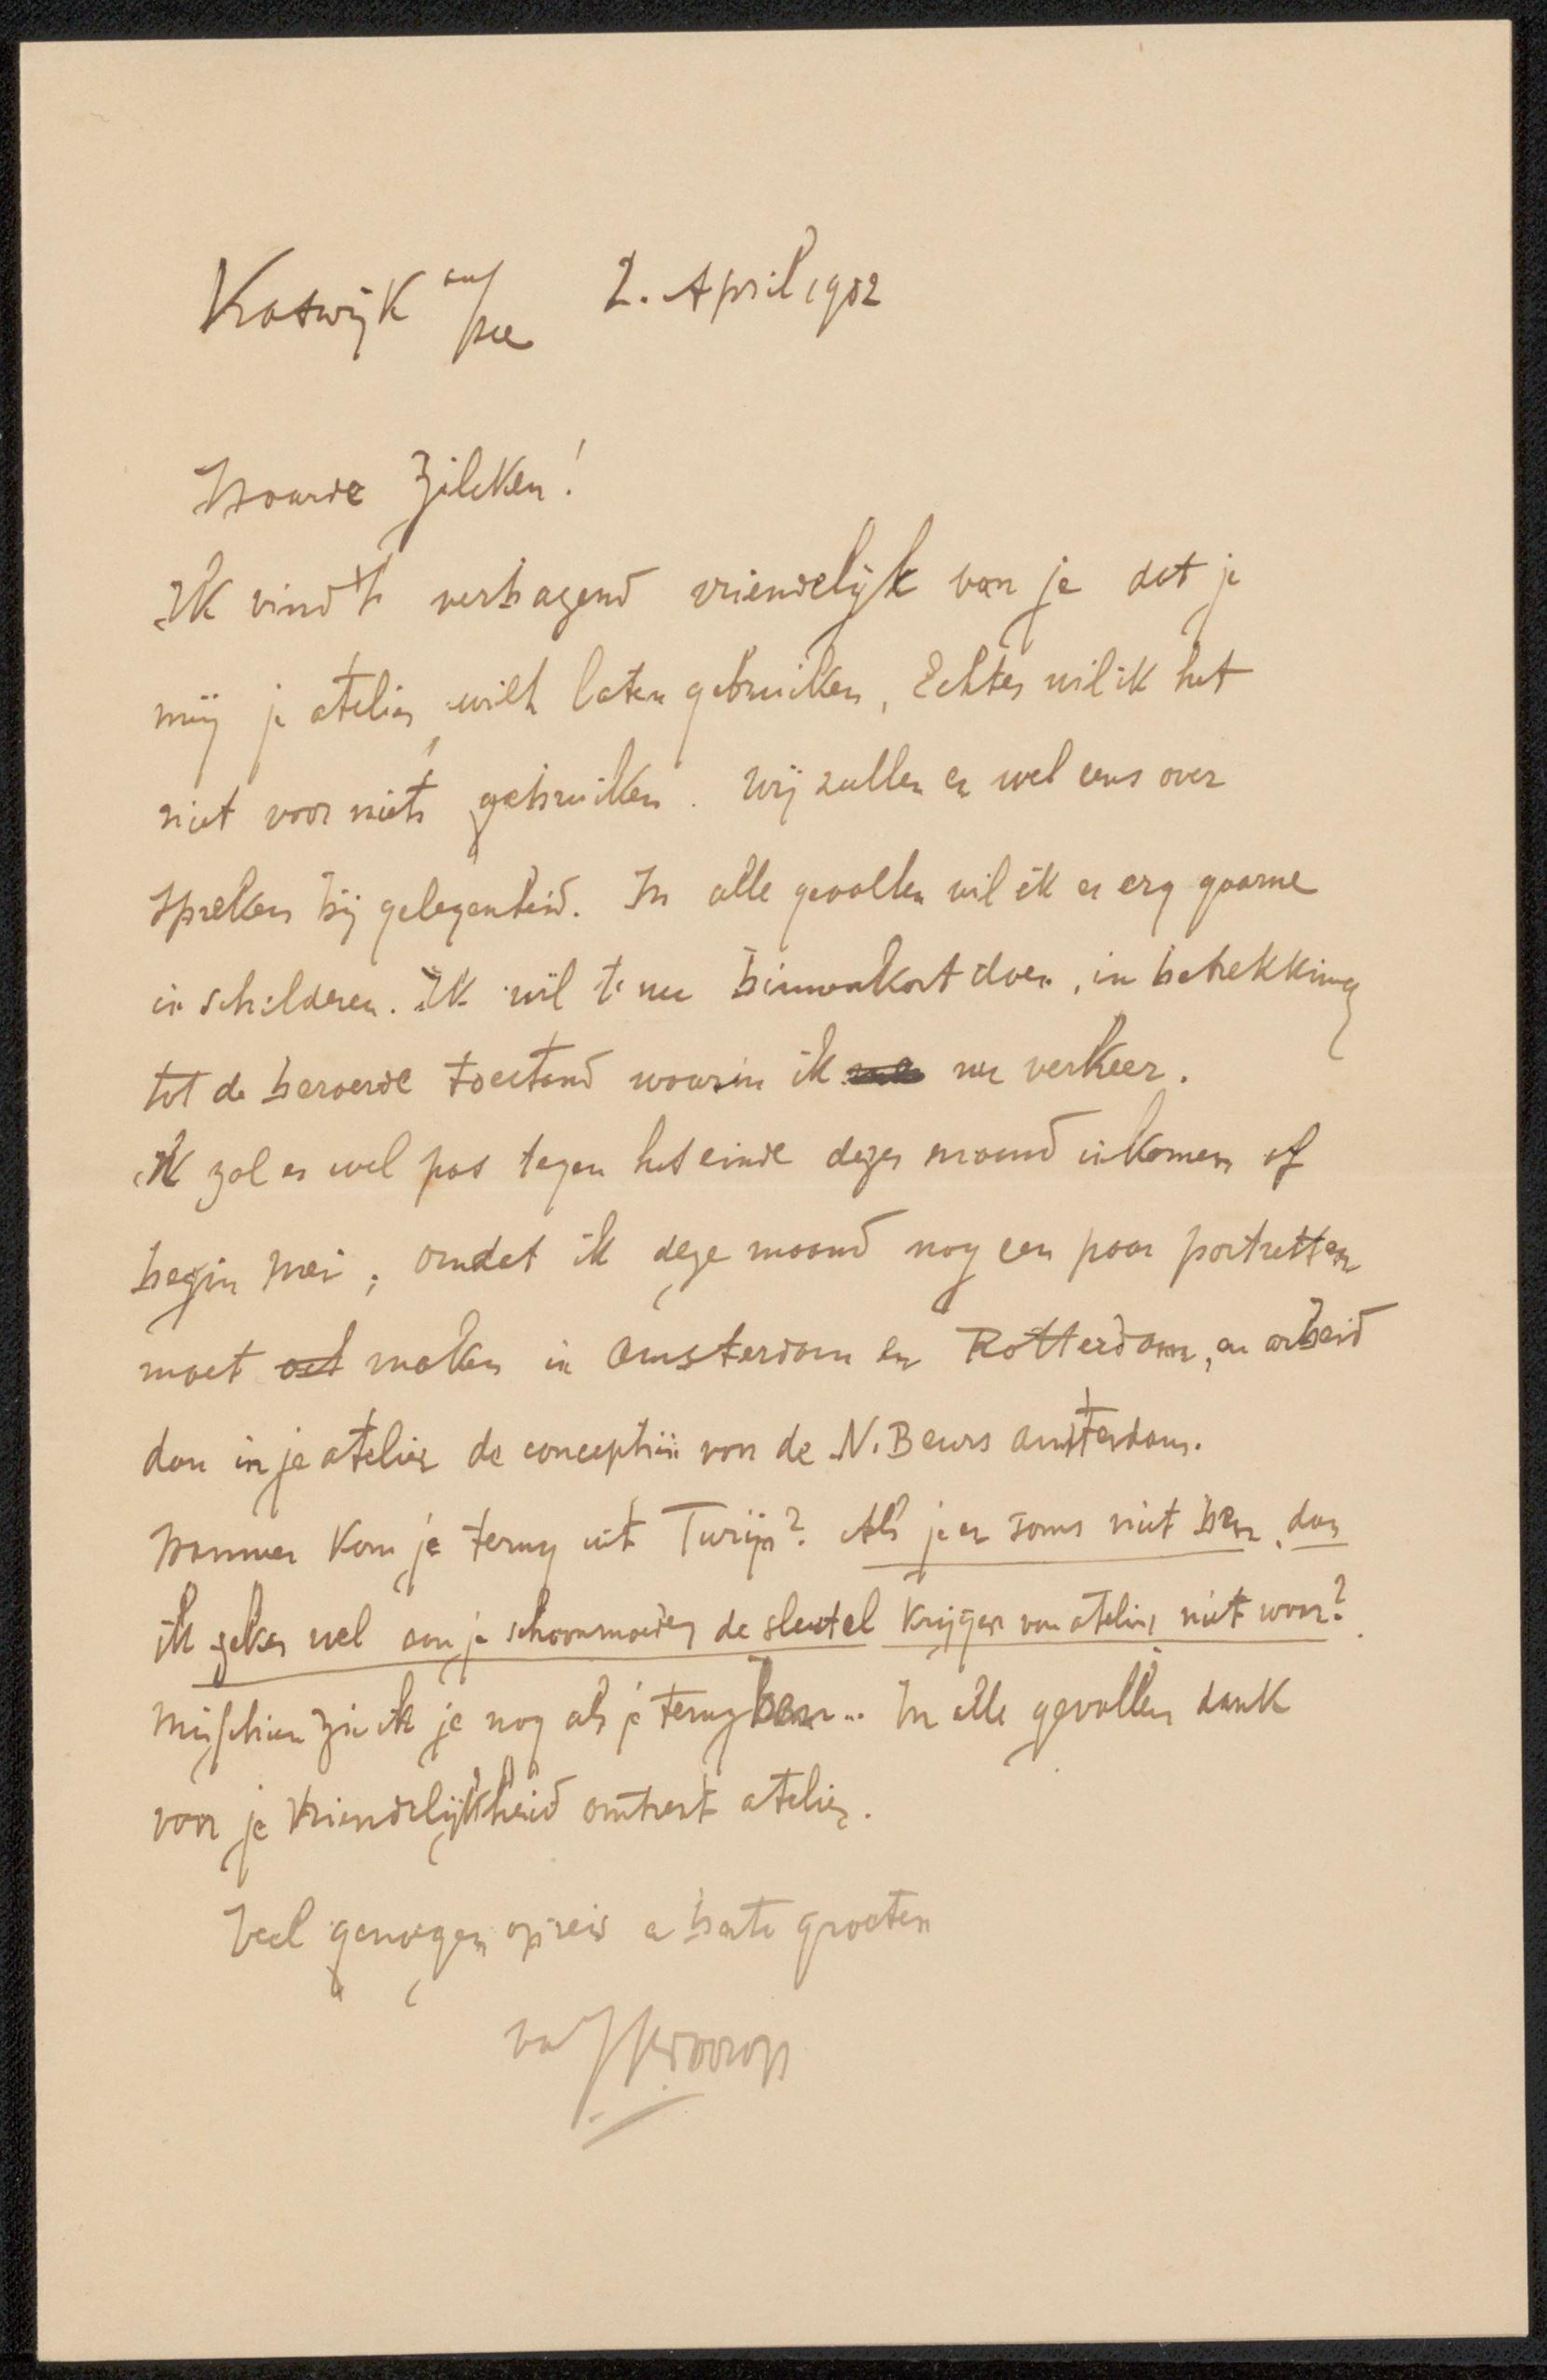 Katwijk aan/zee 2. April 1902
Waarde Zilcken!
Ik vind 't verbazend vriendelijk van je dat je
mij je atelier wilt laten gebruiken, Echter wil ik het
niet voor niets gebruiken. Wij zullen er wel eens over
spreken bij gelegenheid. In alle gevallen wil ik er erg gaarne
in schilderen. Ik wil 't nu binnenkort doen, in betrekking
tot de beroerde toestand waarin ik nu verkeer.
Ik zal er wel pas tegen het einde dezer maand inkomen of
begin Mei, omdat ik deze maand nog een paar portretten
moet maken in Amsterdam en Rotterdam, en arbeid
dan in je atelier de conceptiën van de N. Beurs Amsterdam.
Wanneer kom je terug uit Turijn? Als je er soms niet ben, dan
ik zeker wel aan je schoonmoeder de sleutel krijgen van atelier niet waar?
Misschien zie ik je nog als je terug ben... In alle gevallen dank
voor je vriendelijkheid omtrent atelier.
Veel genoegen op reis en beste groeten
van J Th. Toorop